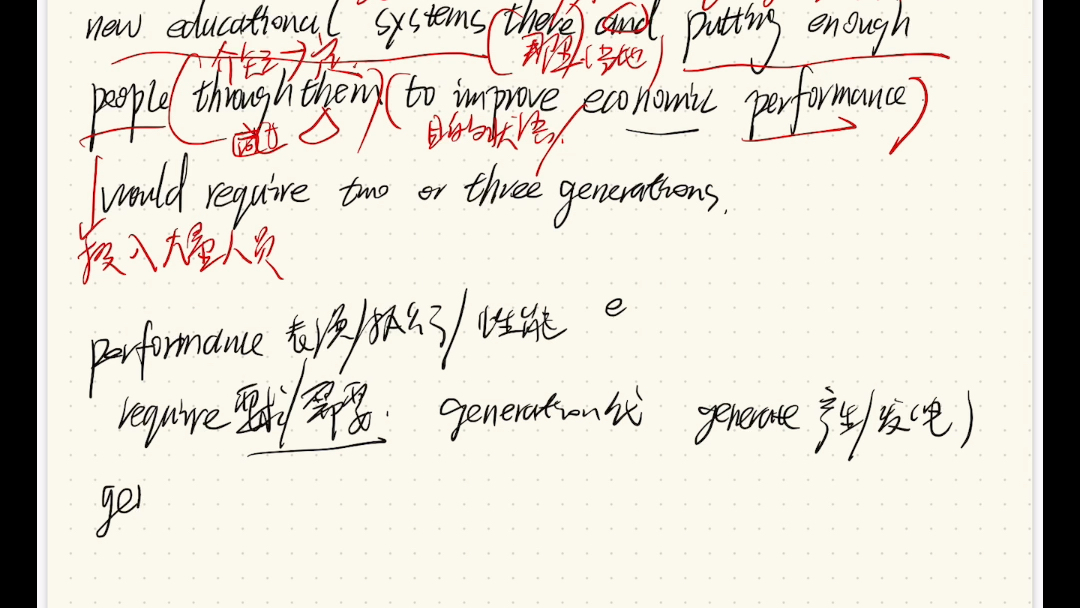 new educational systems (there) and putting enough
介宾→定 那里(当地)
people (through them) (to improve economic performance)
通过 目的状语
would require two or three generations.
投入大量人员
performance 表演/执行/性能 e
require 要求/需要. generation 代 generate 产生/发(电)
ge